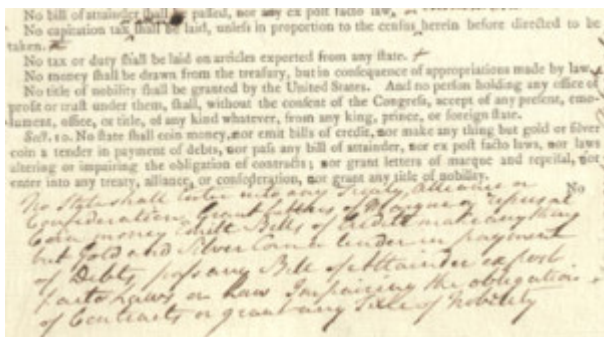 No bill of attainder shall be passed, nor any ex post facto law,
No capitation tax shall be laid, unless in proportion to the census herein before directed to be
taken.
No tax or duty shall be laid on articles exported from any state. +
No money shall be drawn from the treasury, but in consequence of appropriations made by law.
No title of nobility shall be granted by the United States. And no person holding any office of
profit or trust under them, shall, without the consent of the Congress, accept of any present, emo-
lument, office, or title, of any kind whatever, from any king, prince, or foreign state.
Sect. 10. No state shall coin money, nor emit bills of credit, nor make any thing but gold or silver
coin a tender in payment of debts, nor pass any bill of attainder, nor ex post facto laws, nor laws
altering or impairing the obligation of contracts; nor grant letters of marque and reprisal, nor
enter into any treaty, alliance, or confederation, nor grant any title of nobility.
No
No State shall enter into any Treaty, Alliance or
Confederation, Grant Letters of Marque or reprisal
Coin money Emit Bills of Credit make anything
but Gold and Silver Coin a tender in payment
of Debts, pass any Bill of Attainder ex post
facto Laws or Laws Impairing the obligation
of Contracts or grant any Title of Nobility